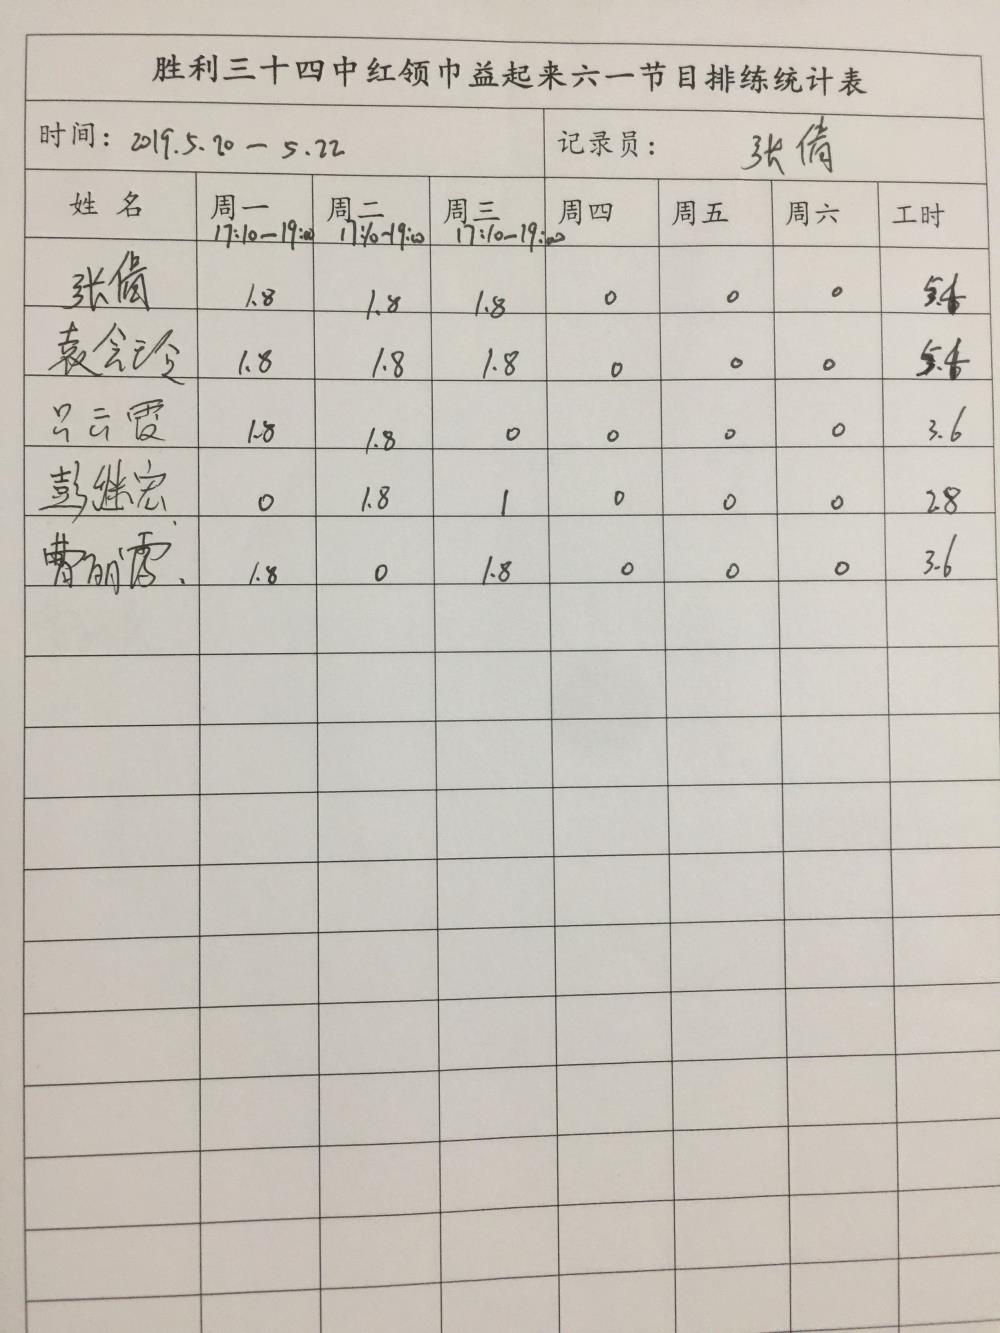 胜利三十四中红领巾益起来六一节目排练统计表
时间: 2019.5.20 — 5.22 记录员: 张倩
姓 名 周一 周二 周三 周四 周五 周六 工时
17:10—19:00 17:10—19:00 17:10—19:00
张倩 1.8 1.8 1.8 0 0 0
袁会珍 1.8 1.8 1.8 0 0 0
吕云霞 1.8 1.8 0 0 0 0 3.6
彭继宏 0 1.8 1 0 0 0 2.8
曹丽霞 1.8 0 1.8 0 0 0 3.6